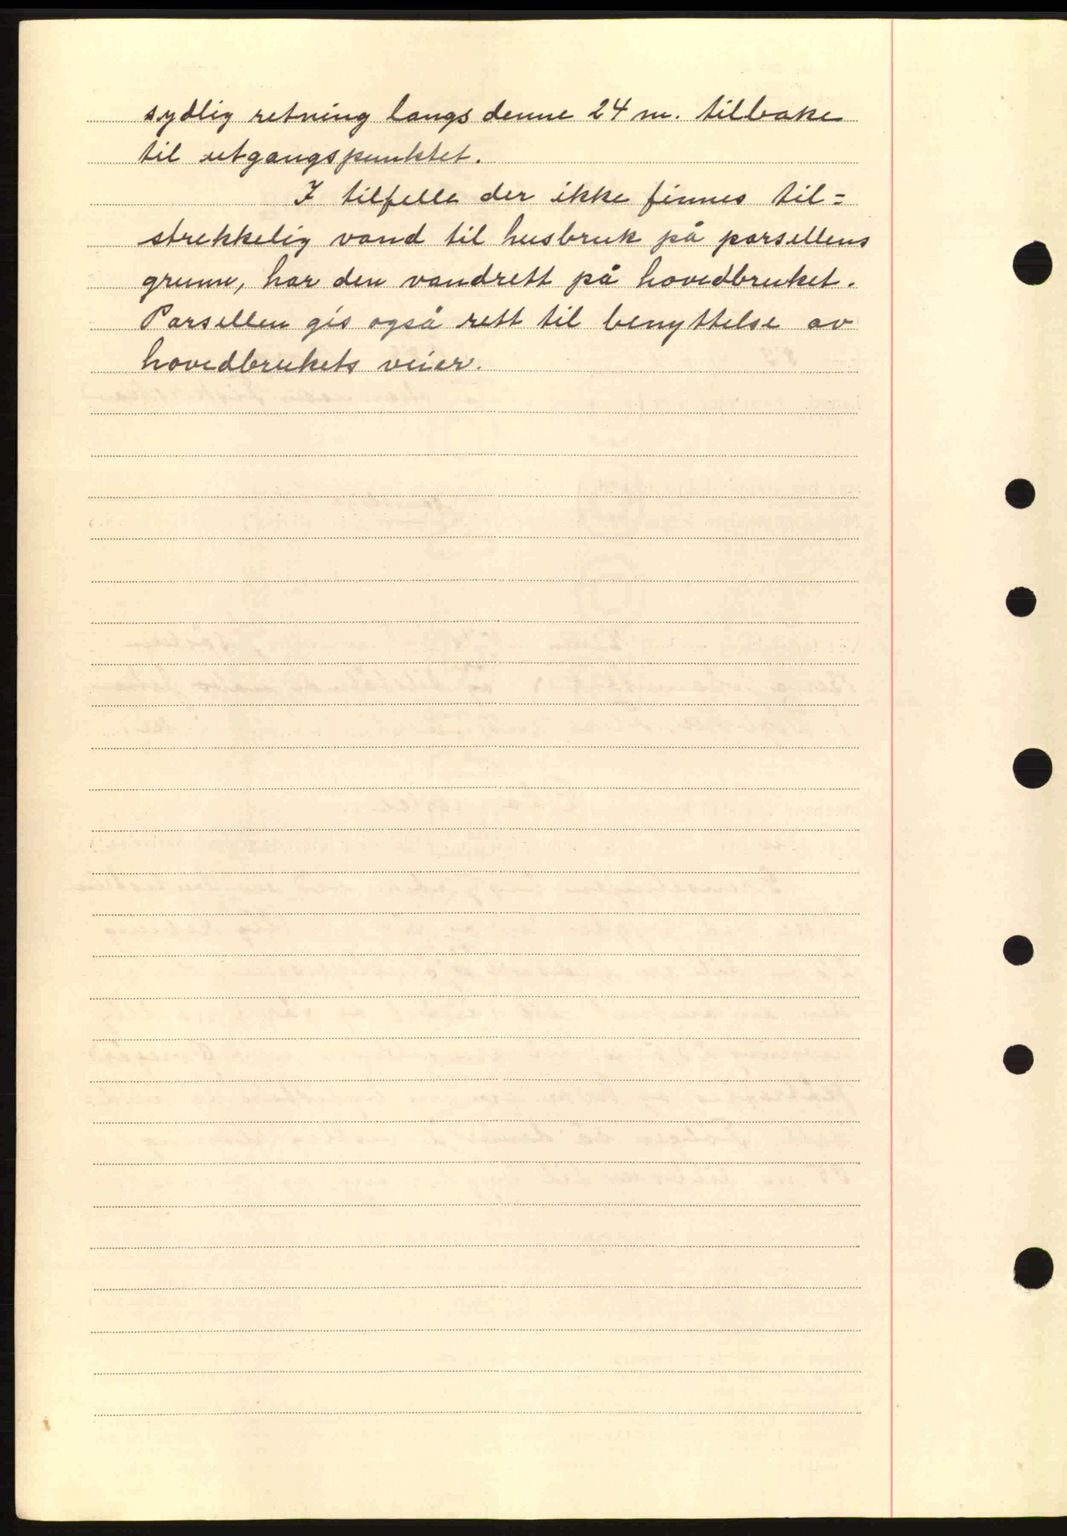 sydlig retning langs denne 24 m. tilbake
til utgangspunktet.
I tilfelle der ikke finnes til=
strekkelig vand til husbruk på parsellens
grunn, har den vandrett på hovedbruket.
Parsellen gis også rett til benyttelse av
hovedbrukets veier.